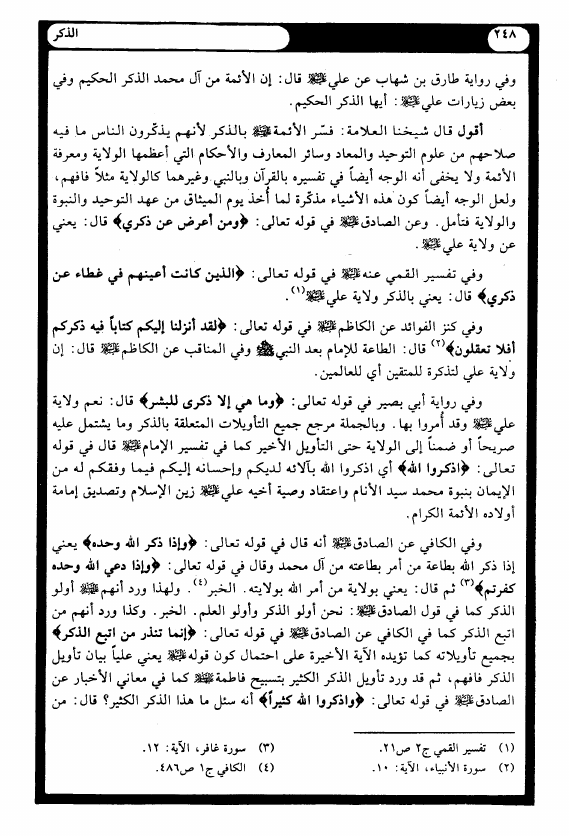 ٢٤٨
الذكر
وفي رواية طارق بن شهاب عن علي عليه السلام قال: إن الأئمة من آل محمد الذكر الحكيم وفي
بعض زيارات علي عليه السلام: أيها الذكر الحكيم.
أقول قال شيخنا العلامة: فسّر الأئمة عليهم السلام بالذكر لأنهم يذكّرون الناس ما فيه
صلاحهم من علوم التوحيد والمعاد وسائر المعارف والأحكام التي أعظمها الولاية ومعرفة
الأئمة ولا يخفى أنه الوجه أيضاً في تفسيره بالقرآن وبالنبي وغيرهما كالولاية مثلاً فافهم،
ولعل الوجه أيضاً كون هذه الأشياء مذكّرة لما أُخذ يوم الميثاق من عهد التوحيد والنبوة
والولاية فتأمل. وعن الصادق عليه السلام في قوله تعالى: ﴿ومن أعرض عن ذكري﴾ قال: يعني
عن ولاية علي عليه السلام.
وفي تفسير القمي عنه عليه السلام في قوله تعالى: ﴿الذين كانت أعينهم في غطاء عن
ذكري﴾ قال: يعني بالذكر ولاية علي عليه السلام(١).
وفي كنز الفوائد عن الكاظم عليه السلام في قوله تعالى: ﴿لقد أنزلنا إليكم كتاباً فيه ذكركم
أفلا تعقلون﴾(٢) قال: الطاعة للإمام بعد النبي ﷺ وفي المناقب عن الكاظم عليه السلام قال: إن
ولاية علي لتذكرة للمتقين أي للعالمين.
وفي رواية أبي بصير في قوله تعالى: ﴿وما هي إلا ذكرى للبشر﴾ قال: نعم ولاية
علي عليه السلام وقد أُمروا بها. وبالجملة مرجع جميع التأويلات المتعلقة بالذكر وما يشتمل عليه
صريحاً أو ضمناً إلى الولاية حتى التأويل الأخير كما في تفسير الإمام عليه السلام قال في قوله
تعالى: ﴿اذكروا الله﴾ أي اذكروا الله بآلائه لديكم وإحسانه إليكم فيما وفقكم له من
الإيمان بنبوة محمد سيد الأنام واعتقاد وصية أخيه علي عليه السلام زين الإسلام وتصديق إمامة
أولاده الأئمة الكرام.
وفي الكافي عن الصادق عليه السلام أنه قال في قوله تعالى: ﴿وإذا ذكر الله وحده﴾ يعني
إذا ذكر الله بطاعة من أمر بطاعته من آل محمد وقال في قوله تعالى: ﴿وإذا دعي الله وحده
كفرتم﴾(٣) ثم قال: يعني بولاية من أمر الله بولايته. الخبر(٤). ولهذا ورد أنهم عليهم السلام أولو
الذكر كما في قول الصادق عليه السلام: نحن أولو الذكر وأولو العلم. الخبر. وكذا ورد أنهم من
اتبع الذكر كما في الكافي عن الصادق عليه السلام في قوله تعالى: ﴿إنما تنذر من اتبع الذكر﴾
بجميع تأويلاته كما تؤيده الآية الأخيرة على احتمال كون قوله عليه السلام يعني علياً بيان تأويل
الذكر فافهم، ثم قد ورد تأويل الذكر الكثير بتسبيح فاطمة عليها السلام كما في معاني الأخبار عن
الصادق عليه السلام في قوله تعالى: ﴿واذكروا الله كثيراً﴾ أنه سئل ما هذا الذكر الكثير؟ قال: من
(١) تفسير القمي ج٢ ص٢١.
(٢) سورة الأنبياء، الآية: ١٠.
(٣) سورة غافر، الآية: ١٢.
(٤) الكافي ج١ ص٤٨٦.